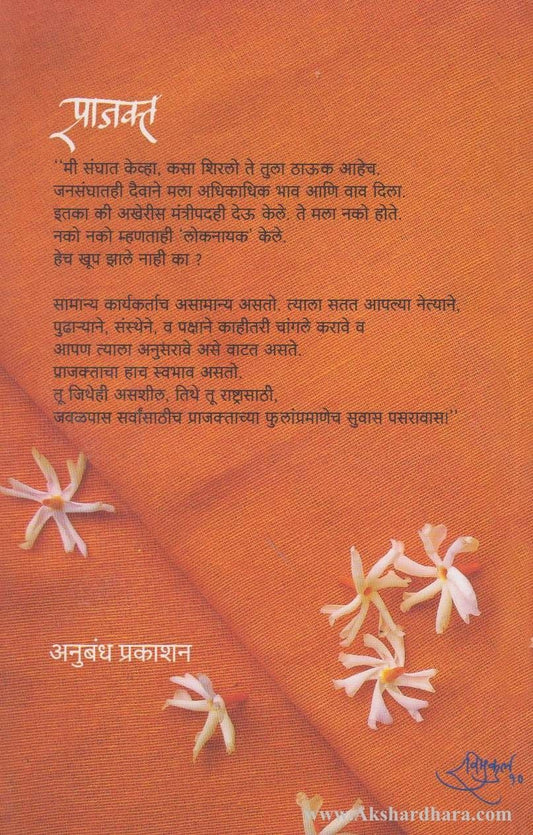 प्राजक्त
"मी संघात केव्हा, कसा शिरलो ते तुला ठाऊक आहेच.
जनसंघातही दैवाने मला अधिकाधिक भाव आणि वाव दिला.
इतका की अखेरीस मंत्रीपदही देऊ केले. ते मला नको होते.
नको नको म्हणताही 'लोकनायक' केले.
हेच खूप झाले नाही का ?
सामान्य कार्यकर्ताच असामान्य असतो. त्याला सतत आपल्या नेत्याने,
पुढाऱ्याने, संस्थेने, व पक्षाने काहीतरी चांगले करावे व
आपण त्याला अनुसरावे असे वाटत असते.
प्राजक्ताचा हाच स्वभाव असतो.
तू जिथेही असशील, तिथे तू राष्ट्रासाठी,
जवळपास सर्वांसाठीच प्राजक्ताच्या फुलांप्रमाणेच सुवास पसरावास!"
अनुबंध प्रकाशन
रविमुकुल
१०
www.Akshardhara.com